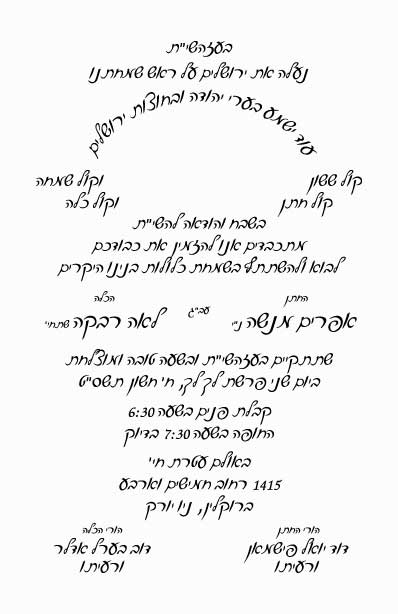 בעזהשי"ת
נעלה את ירושלים על ראש שמחתנו
עוד ישמע בערי יהודה ובחוצות ירושלים
קול ששון וקול שמחה
קול חתן וקול כלה
בשבח והודאה להשי"ת
מתכבדים אנו להזמין את כבודכם
לבוא ולהשתתף בשמחת כלולות בנינו היקרים
החתן הכלה
אפרים מנשה ני' עב"ג לאה רבקה שתחי'
שתתקיים בעזהשי"ת ובשעה טובה ומוצלחת
ביום שני פרשת לך לך, ח"י חשון תשס"ט
קבלת פנים בשעה 6:30
החופה בשעה 7:30 בדיוק
באולם עטרת חי'
1415 רחוב חמישים וארבע
ברוקלין, ניו יורק
הורי החתן הורי הכלה
דוד יואל פישמאן דוב בערל אדלר
ורעיתו ורעיתו